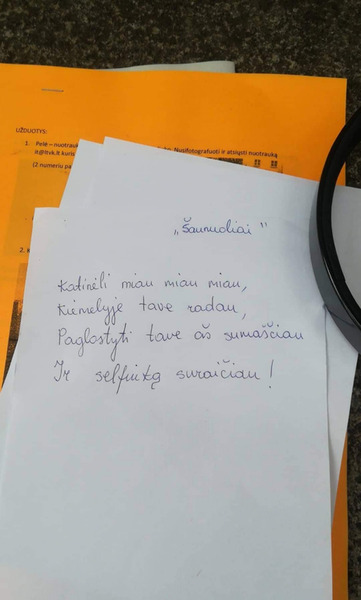 UŽDUOTYS:
1. Pelė – nuotrauk
Nusifotografuoti ir atsiųsti nuotrauką
kuris
(2 numeriu pa
2.
„Šaunuoliai"
Katinėli miau miau miau,
Kiemelyje tave radau,
Paglostyti tave aš sumaščiau
Ir selfiuką suraičiau!